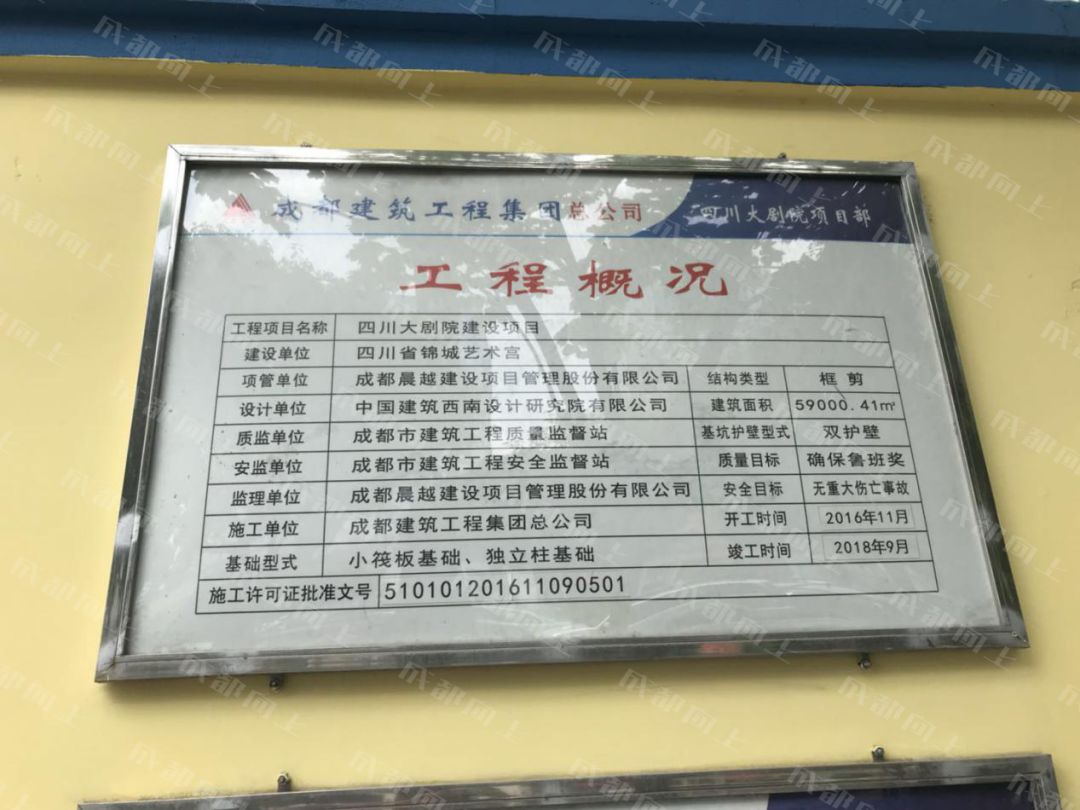 成都建筑工程集团总公司 四川大剧院项目部
工程概况
工程项目名称 四川大剧院建设项目
建设单位 四川省锦城艺术宫
项管单位 成都晨越建设项目管理股份有限公司 结构类型 框剪
设计单位 中国建筑西南设计研究院有限公司 建筑面积 59000.41㎡
质监单位 成都市建筑工程质量监督站 基坑护壁型式 双护壁
安监单位 成都市建筑工程安全监督站 质量目标 确保鲁班奖
监理单位 成都晨越建设项目管理股份有限公司 安全目标 无重大伤亡事故
施工单位 成都建筑工程集团总公司 开工时间 2016年11月
基础型式 小筏板基础、独立柱基础 竣工时间 2018年9月
施工许可证批准文号 510101201611090501
成都向上